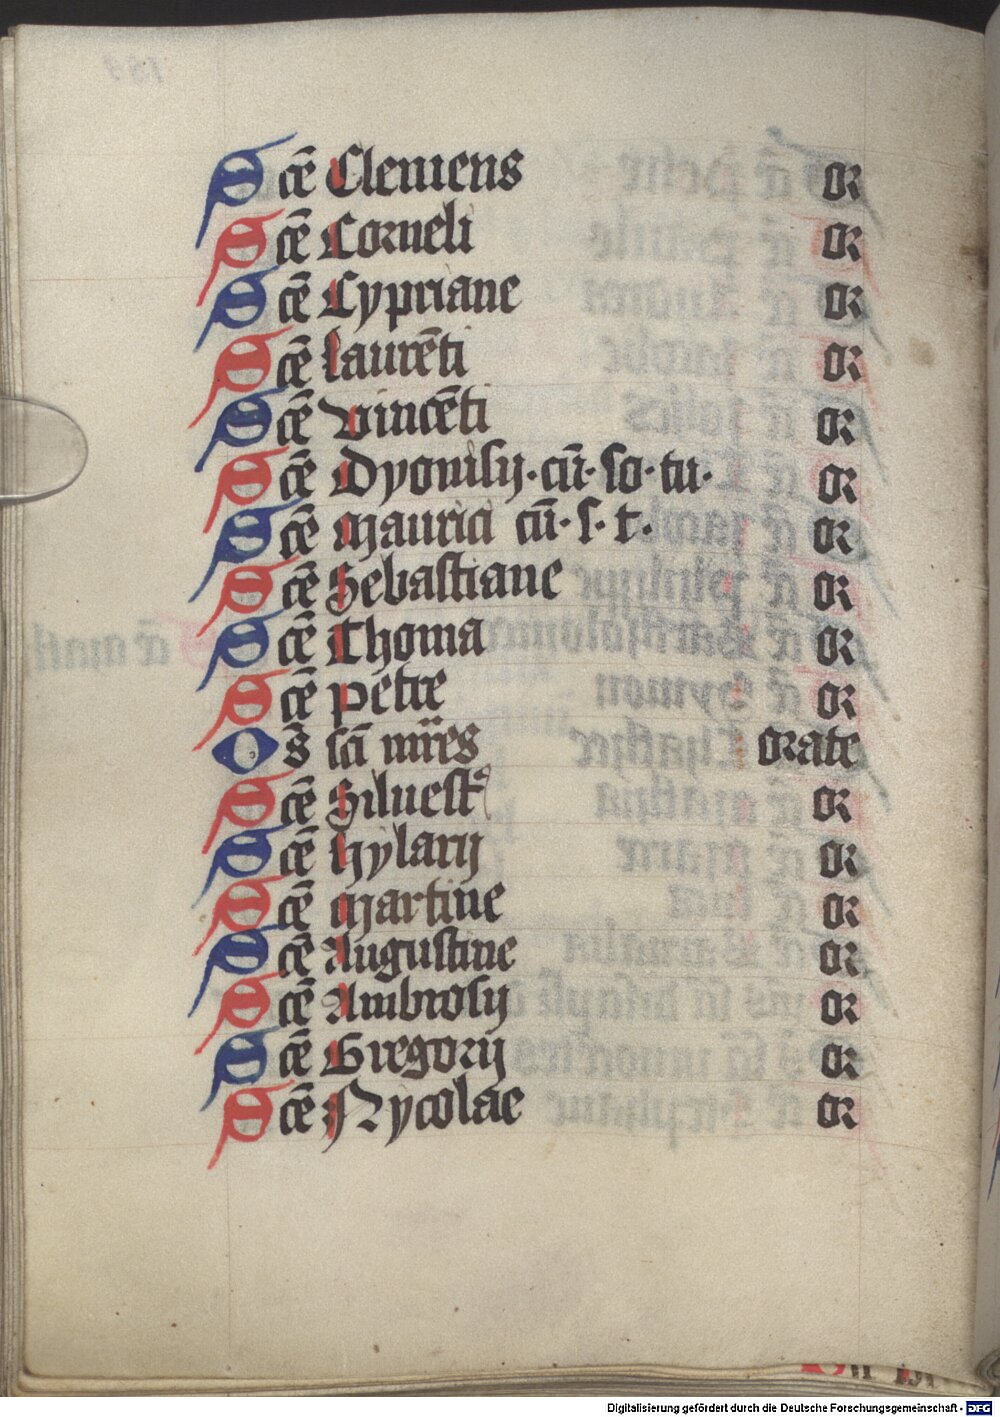 Scē Clemens or
Scē Corneli or
Scē Cypriane or
Scē laurēti or
Scē vincēti or
Scē Dyonisij · cū · so · tu · or
Scē Maurici cū · s · t · or
Scē Sebastiane or
Scē Thoma or
Scē petre or
Os̄ sci m̄res orate
Scē Siluest' or
Scē hylarij or
Scē Martine or
Scē Augustine or
Scē Ambrosij or
Scē Gregorij or
Scē Nycolae or
Digitalisierung gefördert durch die Deutsche Forschungsgemeinschaft - DFG